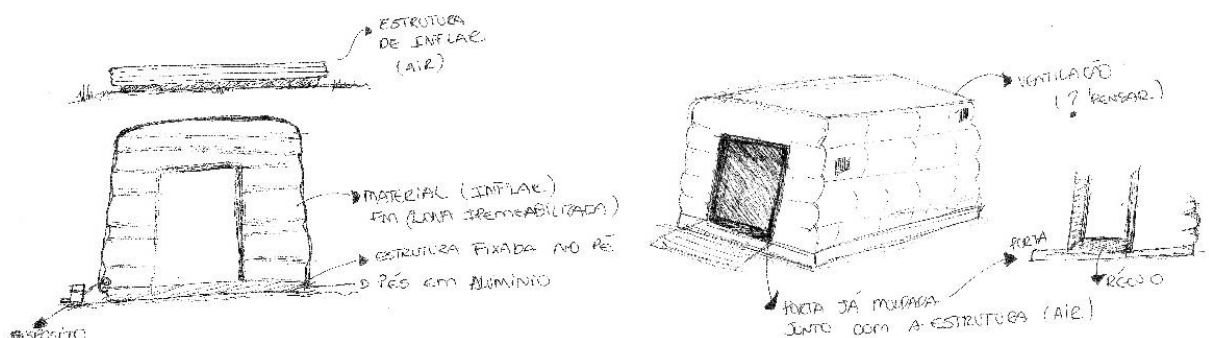 ESTRUTURA
DE INFLAR
(AIR)
MATERIAL (INFLAR)
EM (LONA IPEMEABILIZADA)
ESTRUTURA FIXADA NO PÉ
PÉS EM ALUMÍNIO
VENTILAÇÃO
(? PENSAR.)
PORTA
RÉCUO
PORTA JÁ MOLDADA
JUNTO COM A ESTRUTURA (AIR)